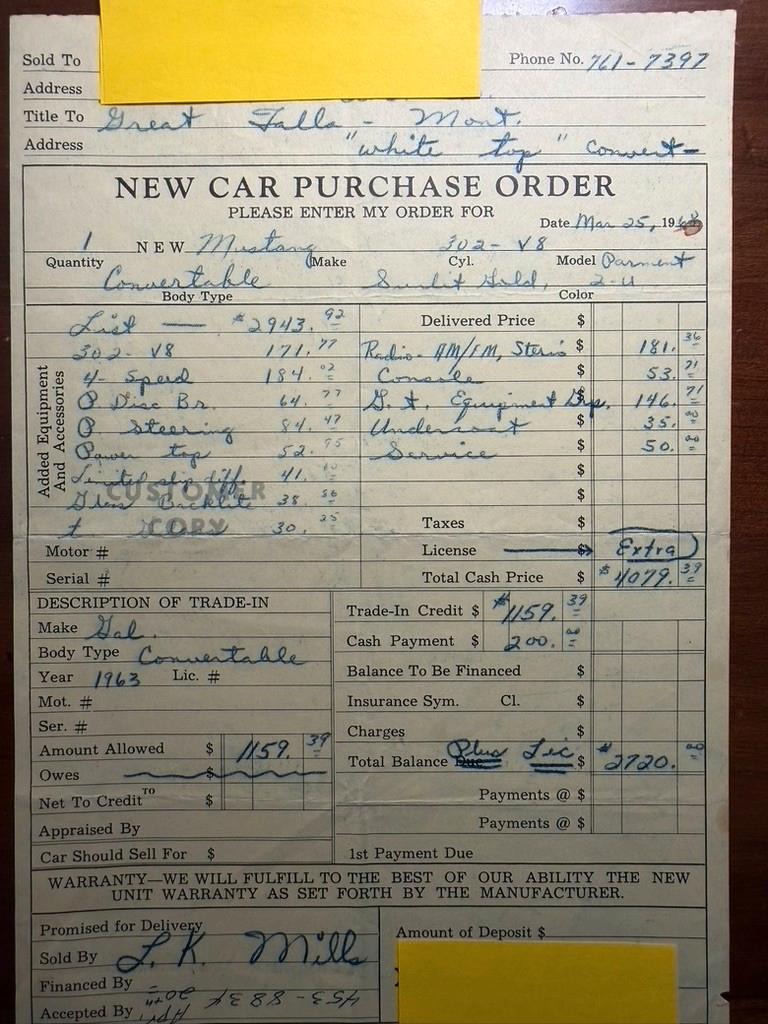 Sold To Phone No. 761-7397
Address
Title To Great Falls - Mont.
Address "white top" Convert-
NEW CAR PURCHASE ORDER
PLEASE ENTER MY ORDER FOR
Date Mar 25, 1968
1 NEW Mustang 302-V8
Quantity Make Cyl. Model Parment
Convertable Sunlit Gold, 2-U
Body Type Color
List — $2943.92 Delivered Price $
302-V8 171.77 Radio-AM/FM, Sterio $ 181.36
4-Speed 184.02 Console $ 53.71
P Disc Br. 64.77 G.t. Equipment Grp. $ 146.71
P Steering 84.47 Undercoat $ 35.00
Power top 52.95 Service $ 50.00
Added Equipment And Accessories
Limited slip diff. 41. $
Glass Backlite 38.86 $
CUSTOMER COPY
t 30.25 Taxes $
Motor # License $ Extra
Serial # Total Cash Price $ $4079.39
DESCRIPTION OF TRADE-IN
Trade-In Credit $ $1159.39
Make Gal.
Cash Payment $ 200.00
Body Type Convertable
Balance To Be Financed $
Year 1963 Lic. #
Mot. # Insurance Sym. Cl. $
Ser. # Charges $
Amount Allowed $ 1159.39
Total Balance Due Plus Lic $ $2720.00
Owes $
Net To Credit TO $ Payments @ $
Appraised By Payments @ $
Car Should Sell For $ 1st Payment Due
WARRANTY—WE WILL FULFILL TO THE BEST OF OUR ABILITY THE NEW
UNIT WARRANTY AS SET FORTH BY THE MANUFACTURER.
Promised for Delivery Amount of Deposit $
Sold By L.K. Mills
Financed By
453-8834
Accepted By Apr. 20th